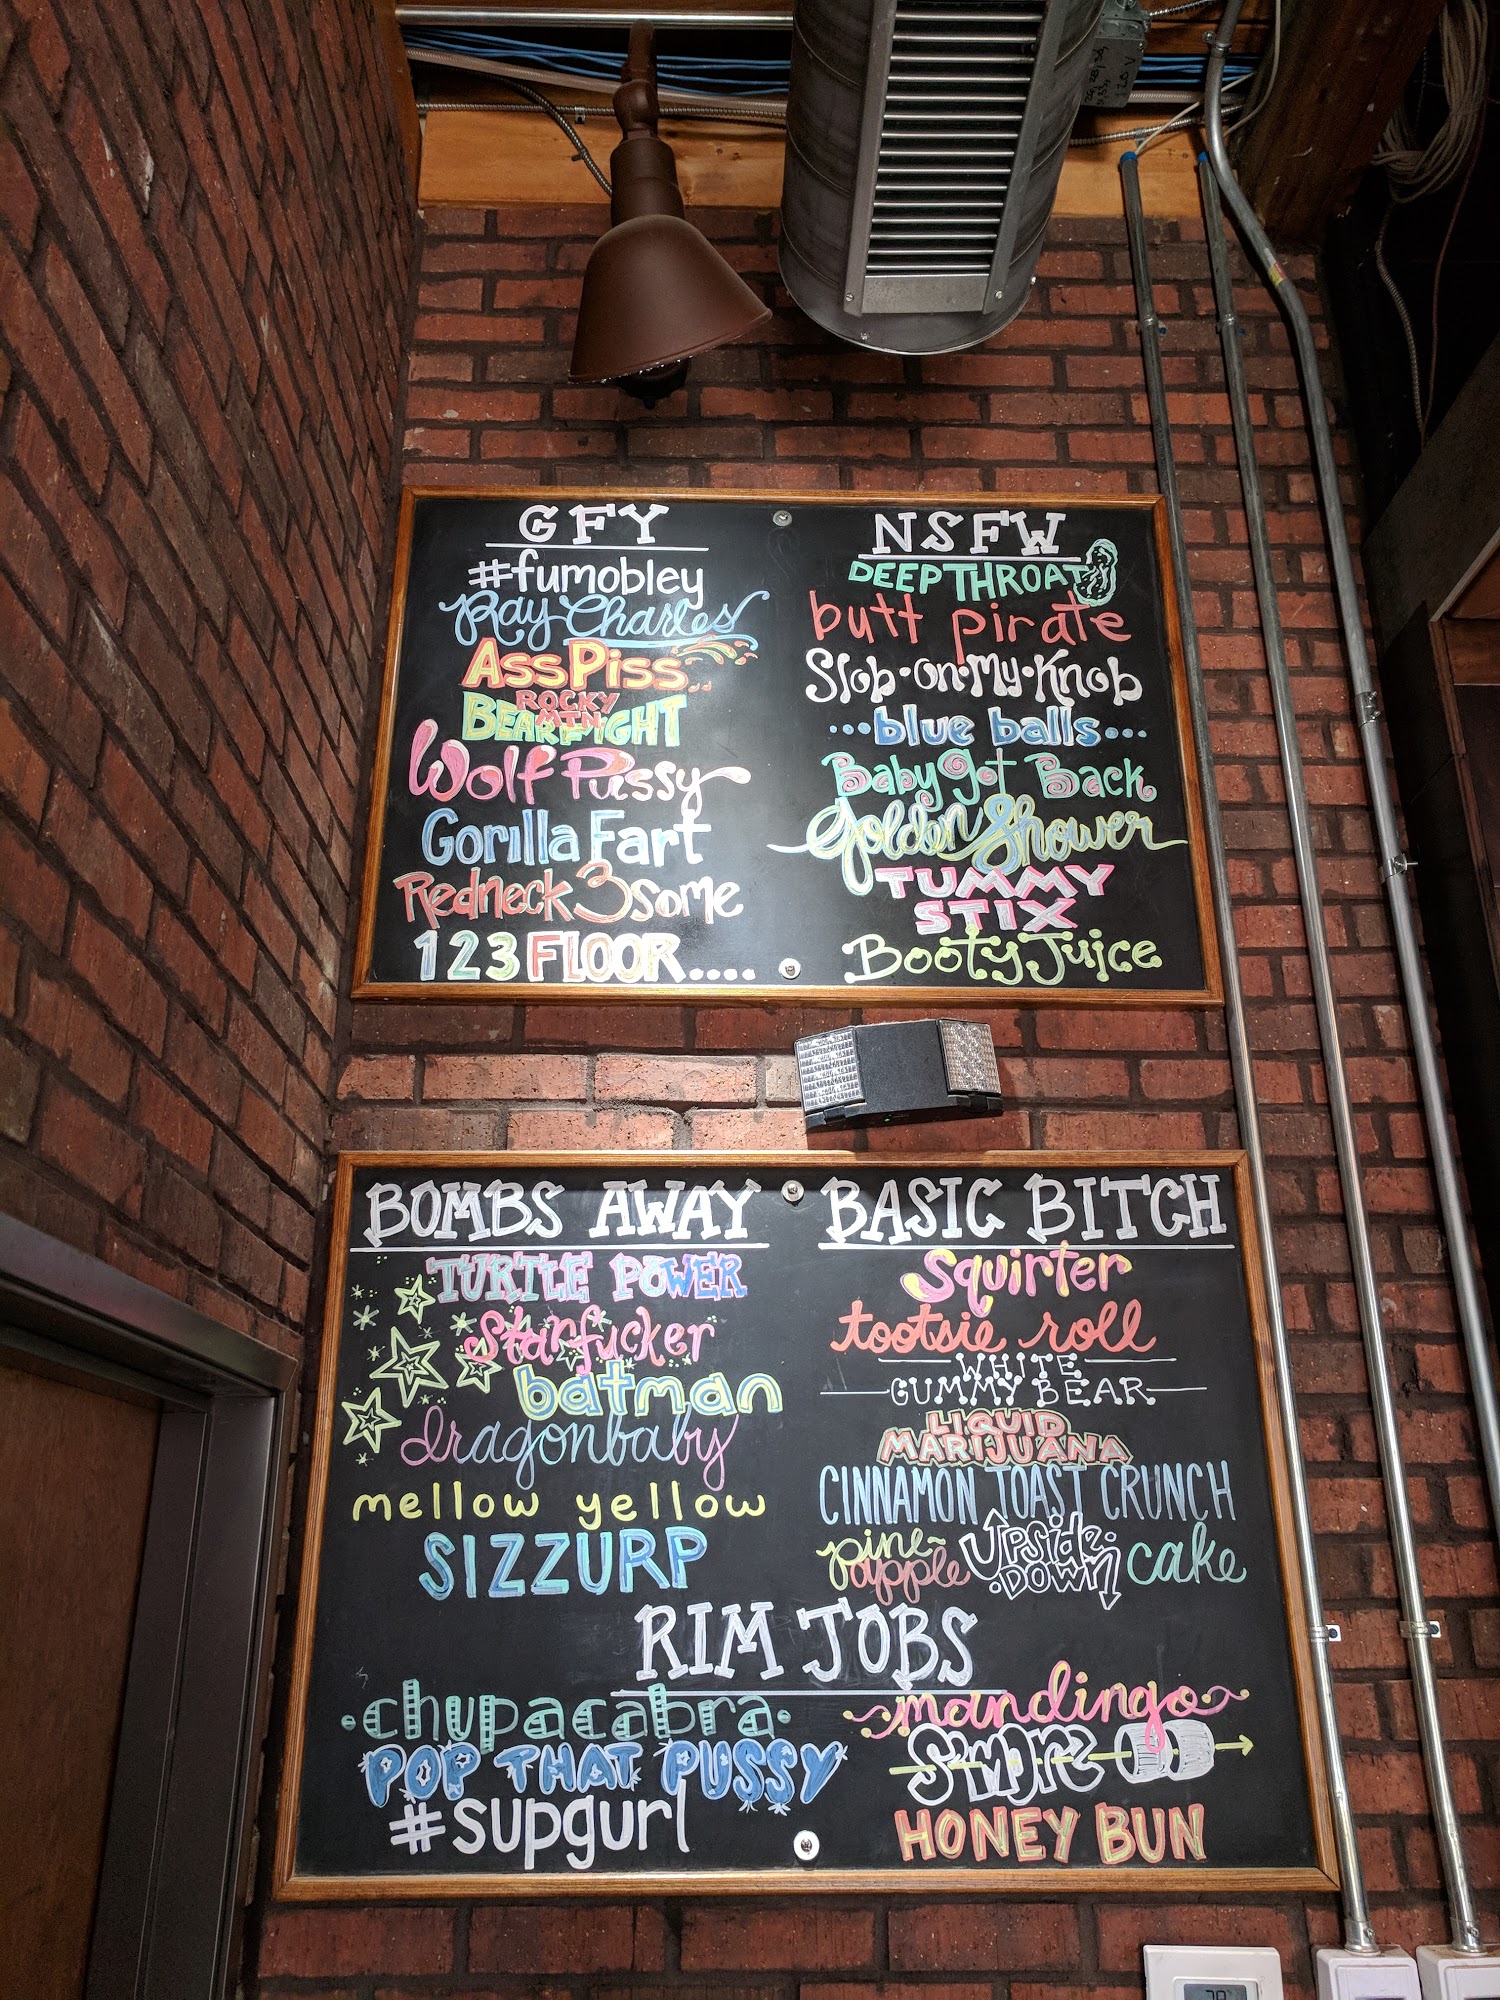 GFY
#fumobley
Ray Charles
AssPiss
ROCKY
MTN
BEARFIGHT
Wolf Pussy
Gorilla Fart
Redneck 3some
123 FLOOR....
NSFW
DEEPTHROAT
butt pirate
Slob·on·My·Knob
...blue balls...
Baby got Back
Golden Shower
TUMMY
STIX
Booty Juice
BOMBS AWAY
TURTLE POWER
Starfucker
batman
dragonbaby
mellow yellow
SIZZURP
BASIC BITCH
Squirter
tootsie roll
WHITE
GUMMY BEAR
LIQUID
MARIJUANA
CINNAMON TOAST CRUNCH
pine-
apple
Upside·
·DOWN
cake
RIM JOBS
·chupacabra·
POP THAT PUSSY
#supgurl
mandingo
S'more
HONEY BUN